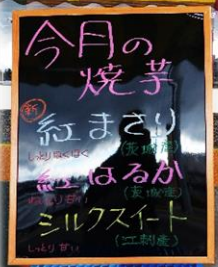 今月の
焼芋
新
紅まさり
しっとりほくほく
(茨城産)
紅はるか
ねっとり甘い
(茨城産)
シルクスイート
しっとり甘い